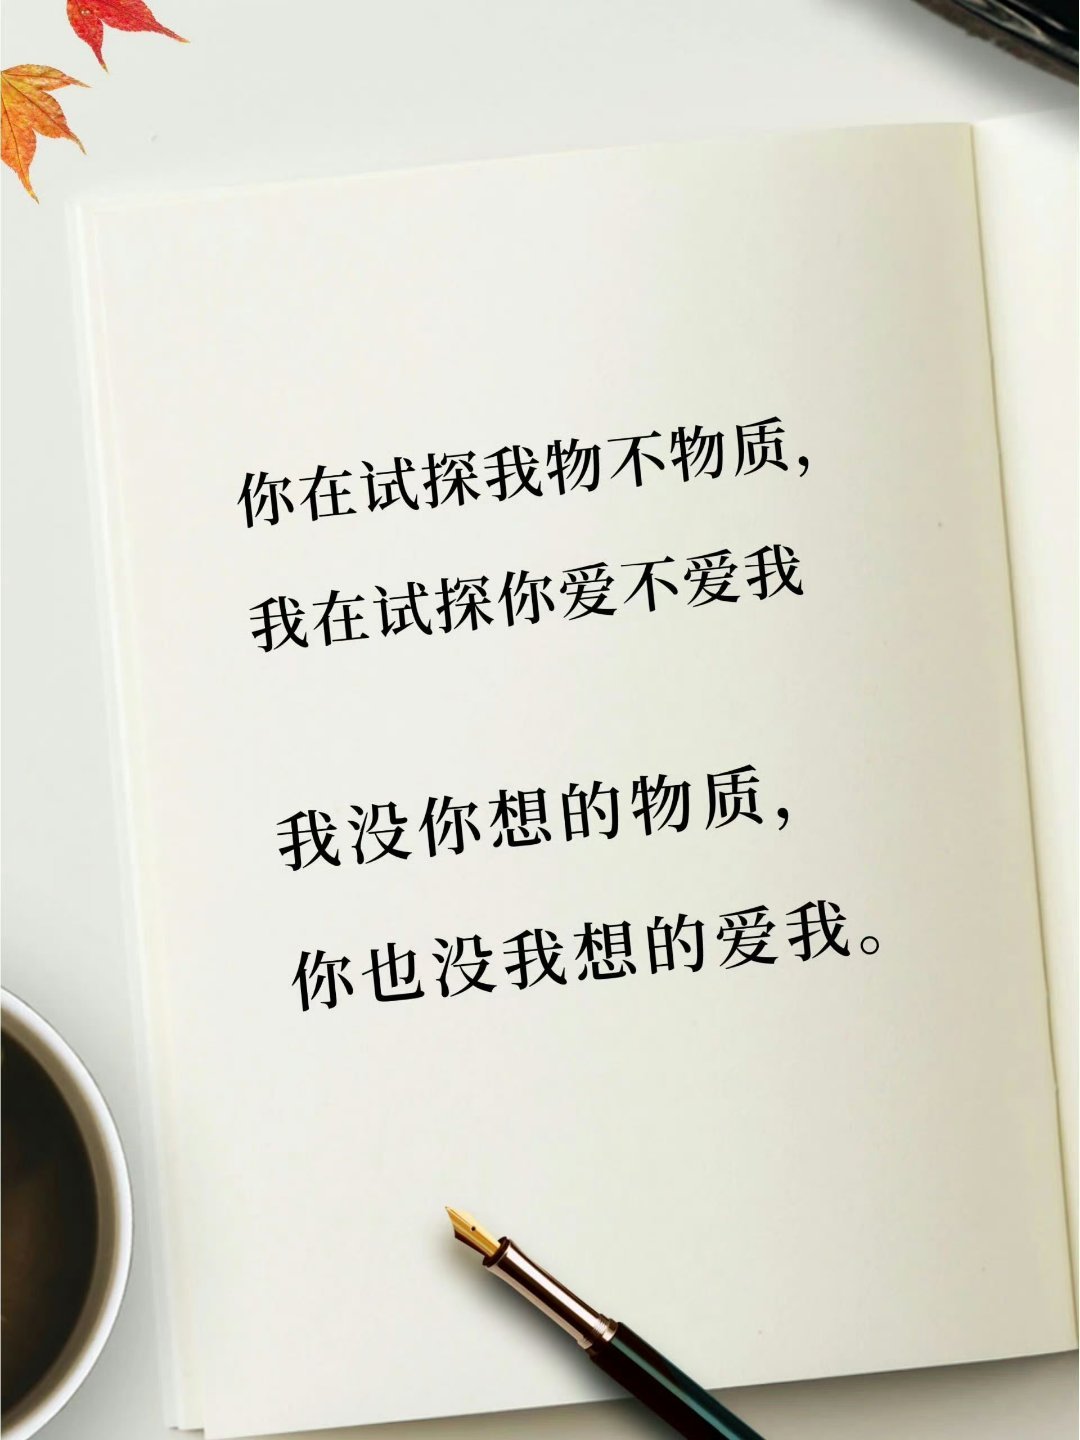 你在试探我物不物质，
我在试探你爱不爱我
我没你想的物质，
你也没我想的爱我。